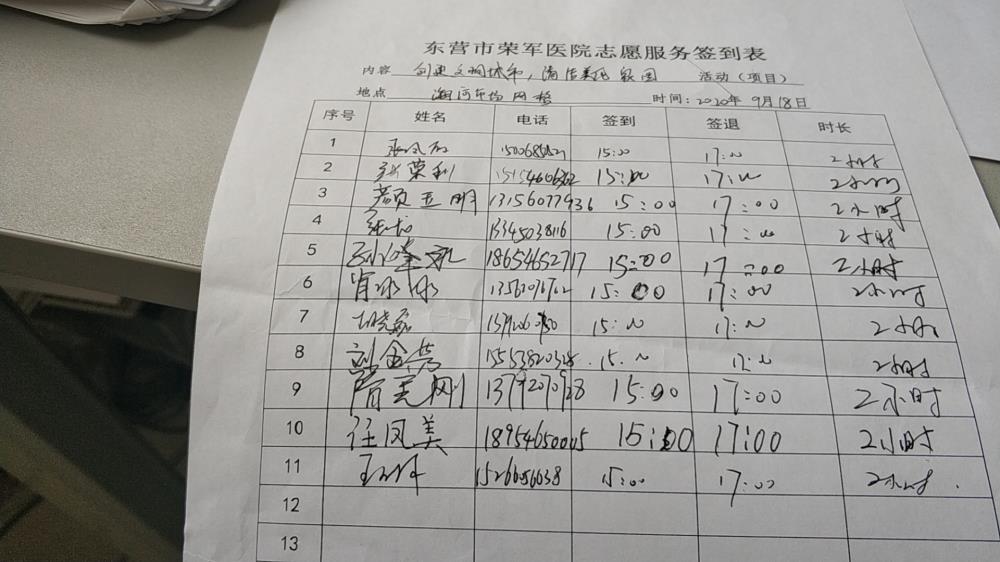 东营市荣军医院志愿服务签到表
内容 创建文明城市，清洁美化家园 活动（项目）
地点 网格 时间：2020年 9月18日
序号 姓名 电话 签到 签退 时长
1 15:00 17:00 2小时
2 张荣利 15:00 17:00 2小时
3 颜玉明 13156077936 15:00 17:00 2小时
4 13345038116 15:00 17:00 2小时
5 18654652717 15:00 17:00 2小时
6 肖冰冰 15:00 17:00 2小时
7 15:00 17:00 2小时
8 刘金芳 15553820328 15:00 17:00 2小时
9 隋美刚 13792070928 15:00 17:00 2小时
10 任凤美 18954650005 15:00 17:00 2小时
11 15266056038 15:00 17:00 2小时
12
13